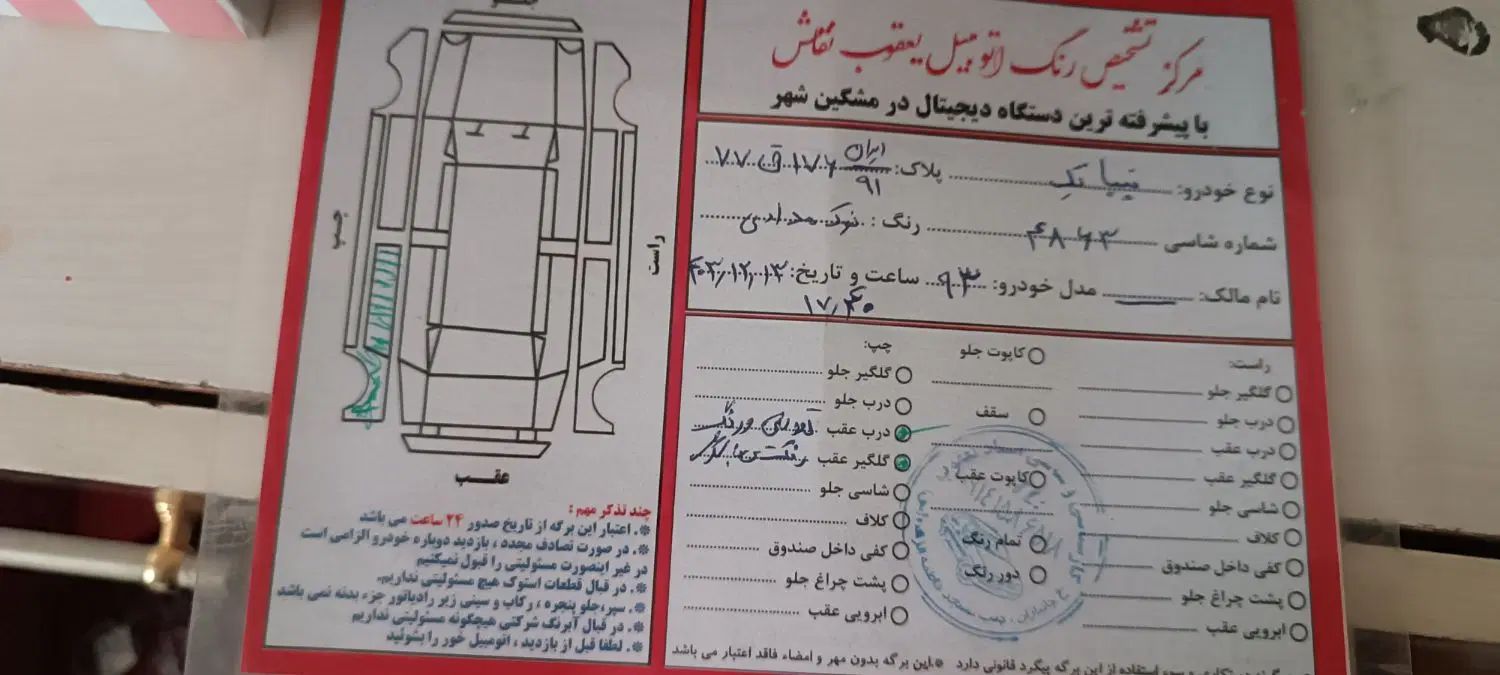 مرکز تشخیص رنگ اتومبیل یعقوب نقاش
با پیشرفته ترین دستگاه دیجیتال در مشگین شهر
نوع خودرو: تیبا تک پلاک: ایران ۹۱ ۱۷۶ ق ۷۷
شماره شاسی ۴۸۶۳ رنگ: نوک مدادی
نام مالک: مدل خودرو: ۹۳ ساعت و تاریخ: ۴۰۳/۱۲/۱۳
۱۷/۴۰
راست:
گلگیر جلو
درب جلو
درب عقب
گلگیر عقب
شاسی جلو
کلاف
کفی داخل صندوق
پشت چراغ جلو
ابرویی عقب
کاپوت جلو
سقف
کاپوت عقب
تمام رنگ
دور رنگ
چپ:
گلگیر جلو
درب جلو
درب عقب
گلگیر عقب
شاسی جلو
کلاف
کفی داخل صندوق
پشت چراغ جلو
ابرویی عقب
این برگه بدون مهر و امضاء فاقد اعتبار می باشد
استفاده از این برگه پیگرد قانونی دارد
جلو
چپ
راست
عقب
چند تذکر مهم:
*. اعتبار این برگه از تاریخ صدور ۲۴ ساعت می باشد
*. در صورت تصادف مجدد، بازدید دوباره خودرو الزامی است
در غیر اینصورت مسئولیتی را قبول نمیکنیم
*. در قبال قطعات استوک هیچ مسئولیتی نداریم.
*. سپر، جلو پنجره، رکاب و سینی زیر رادیاتور جزء بدنه نمی باشد
*. در قبال آبرنگ شرکتی هیچگونه مسئولیتی نداریم
*. لطفا قبل از بازدید، اتومبیل خور را بشوئید